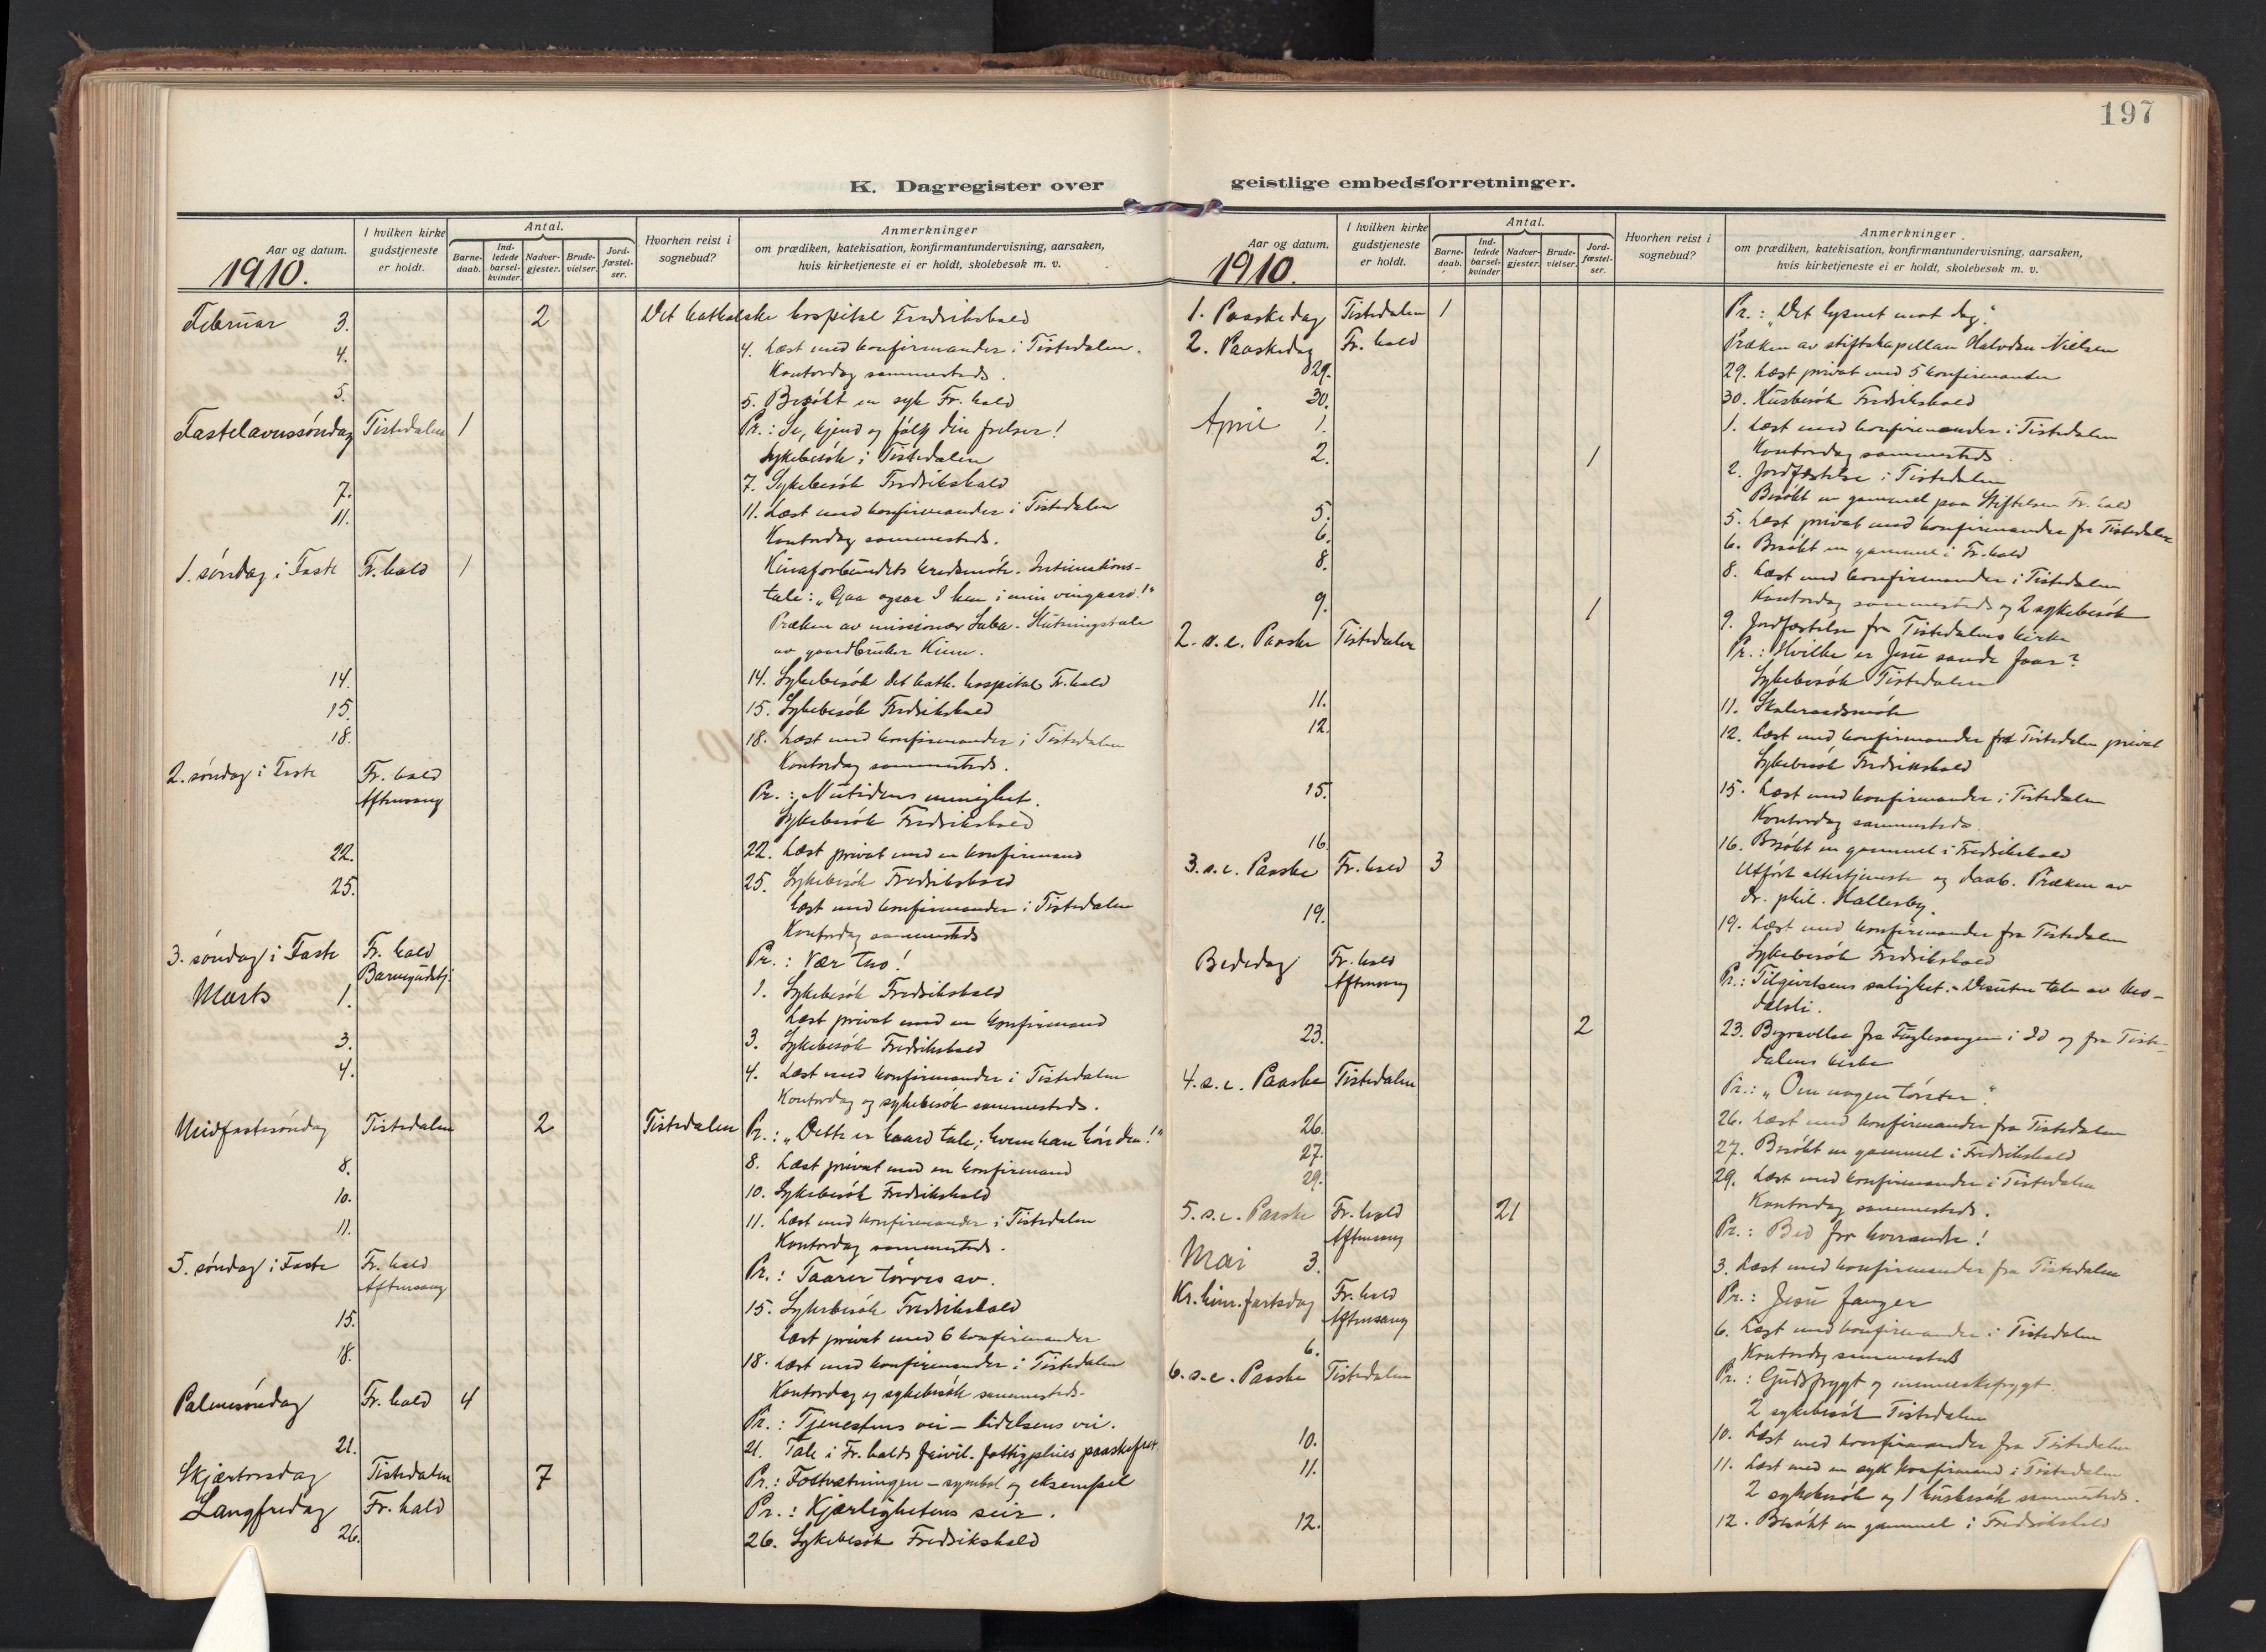 197
K. Dagregister over
geistlige embedsforretninger.
Aar og datum.
1910.
I hvilken kirke gudstjeneste er holdt.
Antal.
Barne-daab.
Ind-ledede barsel-kvinder.
Nadver-gjester.
Brude-vielser.
Jord-fæstel-ser.
Hvorhen reist i sognebud?
Anmerkninger
om prædiken, katekisation, konfirmantundervisning, aarsaken,
hvis kirketjeneste ei er holdt, skolebesøk m. v.
Februar 3. 2 Det katholske hospital Fredrikshald
4. 4. Læst med konfirmander i Tistedalen.
Kontordag sammesteds.
5. 5. Besøkt en syk Fr.hald
Fastelavnssøndag Tistedalen 1 Pr.: Se, kjend og følg din frelser!
Sykebesøk i Tistedalen
7. 7. Sykebesøk Fredrikshald
11. 11. Læst med konfirmander i Tistedalen
Kontordag sammesteds.
1. søndag i Faste Fr.hald 1 Kinaforbundets kredsmøte. Intimations-
tale: „Gaa ogsaa I hen i min vingaard!"
Præken av missionær - Slutningstale
av gaardbruker
14. 14. Sykebesøk det kath. hospital Fr.hald
15. 15. Sykebesøk Fredrikshald
18. 18. Læst med konfirmander i Tistedalen
Kontordag sammesteds.
2. søndag i Faste Fr.hald Pr.: Nutidens menighet.
Aftensang Sykebesøk Fredrikshald
22. 22. Læst privat med en konfirmand
25. 25. Sykebesøk Fredrikshald
Læst med konfirmander i Tistedalen
Kontordag sammesteds
3. søndag i Faste Fr.hald Pr.: Vær tro!
Barnegudstj.
Marts 1. 1. Sykebesøk Fredrikshald
Læst privat med en konfirmand
3. 3. Sykebesøk Fredrikshald
4. 4. Læst med konfirmander i Tistedalen
Kontordag og sykebesøk sammesteds.
Midfastesøndag Tistedalen 2 Tistedalen Pr.: „Dette er haard tale; hvem kan høre den!"
8. 8. Læst privat med en konfirmand
10. 10. Sykebesøk Fredrikshald
11. 11. Læst med konfirmander i Tistedalen
Kontordag sammesteds.
5. søndag i Faste Fr.hald Pr.: Taarer tørres av.
Aftensang
15. 15. Sykebesøk Fredrikshald
Læst privat med 6 konfirmander
18. 18. Læst med konfirmander i Tistedalen
Kontordag og sykebesøk sammesteds.
Palmesøndag Fr.hald 4 Pr.: Tjenestens vei – lidelsens vei.
21. 21. Tale i Fr.halds frivil. fattigpleies paaskefest
Skjærtorsdag Tistedalen 7 Pr.: Fotvætningen – symbol og eksempel
Langfredag Fr.hald Pr.: Kjærlighetens seir.
26. 26. Sykebesøk Fredrikshald
Aar og datum.
1910.
I hvilken kirke gudstjeneste er holdt.
Antal.
Barne-daab.
Ind-ledede barsel-kvinder
Nadver-gjester.
Brude-vielser.
Jord-fæstel-ser.
Hvorhen reist i sognebud?
Anmerkninger
om prædiken, katekisation, konfirmantundervisning, aarsaken,
hvis kirketjeneste ei er holdt, skolebesøk m. v.
1. Paaskedag Tistedalen 1 Pr.: „Det lysnet mot dag."
2. Paaskedag Fr.hald Præken av stiftskapellan Halvdan Nielsen
29. 29. Læst privat med 5 konfirmander
30. 30. Husbesøk Fredrikshald
April 1. 1. Læst med konfirmander i Tistedalen
Kontordag sammesteds.
2. 1 2. Jordfæstelse i Tistedalen
Besøkt en gammel paa Stiftelsen Fr.hald
5. 5. Læst privat med konfirmander fra Tistedalen
6. 6. Besøkt en gammel i Fr.hald
8. 8. Læst med konfirmander i Tistedalen
Kontordag sammesteds og 2 sykebesøk
9. 1 9. Jordfæstelse fra Tistedalens kirke
2. s. e. Paaske Tistedalen Pr.: Hvilke er Jesu sande faar?
Sykebesøk Tistedalen
11. 11. Skoleraadsmøte
12. 12. Læst med konfirmander fra Tistedalen privat
Sykebesøk Fredrikshald
15. 15. Læst med konfirmander i Tistedalen
Kontordag sammesteds.
16. 16. Besøkt en gammel i Fredrikshald
3. s. e. Paaske Fr.hald 3 Utført altertjeneste og daab. Præken av
dr. phil. Hallesby.
19. 19. Læst med konfirmander fra Tistedalen
Sykebesøk Fredrikshald
Bededag Fr.hald Pr.: Tilgivelsens salighet. - Desuten tale av
Aftensang
23. 2 23. Begravelse fra Fuglevangen i Id og fra Tiste-
dalens kirke
4. s. e. Paaske Tistedalen Pr.: „Om nogen tørster."
26. 26. Læst med konfirmander fra Tistedalen
27. 27. Besøkt en gammel i Fredrikshald
29. 29. Læst med konfirmander i Tistedalen
Kontordag sammesteds.
5. s. e. Paaske Fr.hald 21 Pr.: Bed for hverandre!
Aftensang
Mai 3. 3. Læst med konfirmander fra Tistedalen
Kr. him.fartsdag Fr.hald Pr.: Jesu fanger
Aftensang
6. 6. Læst med konfirmander i Tistedalen
Kontordag sammesteds
6. s. e. Paaske Tistedalen Pr.: Gudsfrygt og menneskefrygt.
2 sykebesøk Tistedalen
10. 10. Læst med konfirmander fra Tistedalen
11. 11. Læst med en syk konfirmand i Tistedalen
2 sykebesøk og 1 husbesøk sammesteds.
12. 12. Besøkt en gammel i Fredrikshald